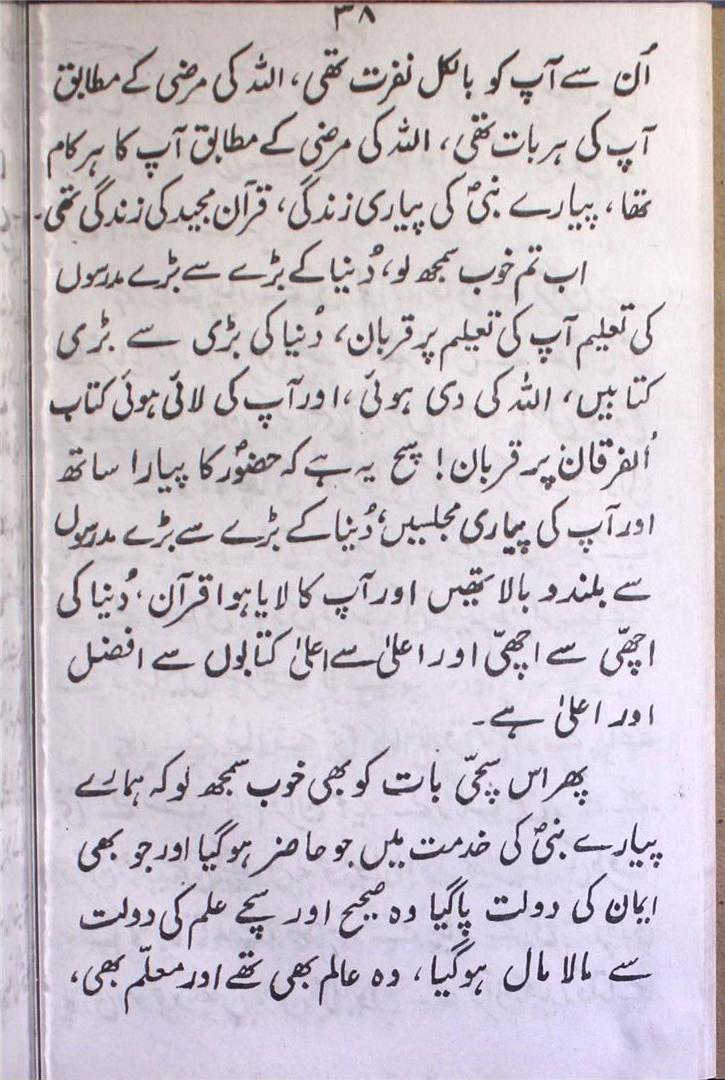 ۳۸
اُن سے آپ کو بالکل نفرت تھی، اللہ کی مرضی کے مطابق
آپ کی ہر بات تھی، اللہ کی مرضی کے مطابق آپ کا ہر کام
تھا، پیارے نبیؐ کی پیاری زندگی، قرآن مجید کی زندگی تھی۔
اب تم خوب سمجھ لو، دُنیا کے بڑے سے بڑے مدرسوں
کی تعلیم آپ کی تعلیم پر قربان، دُنیا کی بڑی سے بڑی
کتابیں، اللہ کی دی ہوئی، اور آپ کی لائی ہوئی کتاب
اُلفرقان پر قربان! سچ یہ ہے کہ حضورؐ کا پیارا ساتھ
اور آپ کی پیاری مجلسیں، دُنیا کے بڑے سے بڑے مدرسوں
سے بلند و بالا تھیں اور آپ کا لایا ہوا قرآن، دُنیا کی
اچھّی سے اچھّی اور اعلیٰ سے اعلیٰ کتابوں سے افضل
اور اعلیٰ ہے۔
پھر اس سچّی بات کو بھی خوب سمجھ لو کہ ہمارے
پیارے نبیؐ کی خدمت میں جو حاضر ہوگیا اور جو بھی
ایمان کی دولت پاگیا وہ صحیح اور سچے علم کی دولت
سے مالا مال ہوگیا، وہ عالم بھی تھے اور معلّم بھی،